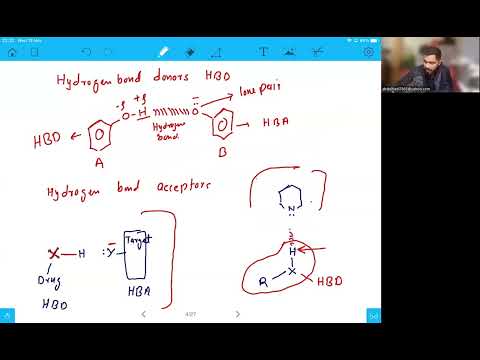 Hydrogen bond donors HBD
-δ +δ
O-H
O
lone pair
HBD
Hydrogen bond
HBA
A
B
Hydrogen bond acceptors
N
X-H
:Y
Target
H
Drug
R
X
HBD
HBD
HBA
4/27